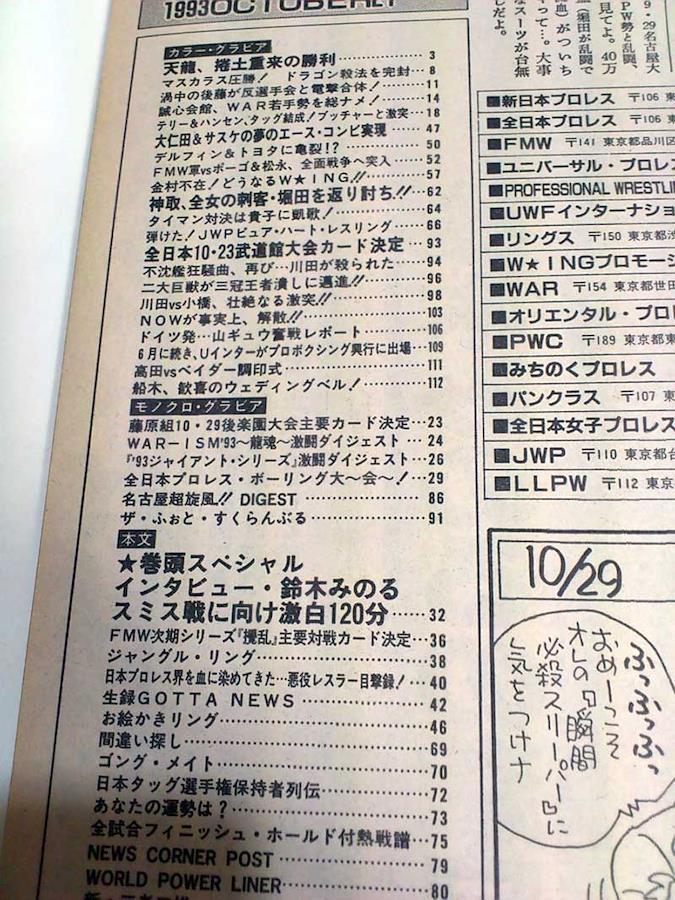 1993 OCTOBER 27
カラー・グラビア
天龍、捲土重来の勝利………… 3
マスカラス圧勝! ドラゴン殺法を完封…8
渦中の後藤が反選手会と電撃合体!……11
誠心会館、WAR若手勢を総ナメ!……14
テリー&ハンセン、タッグ結成!ブッチャーと激突…18
大仁田&サスケの夢のエース・コンビ実現……47
デルフィン&トヨタに亀裂!?……50
FMW軍vsポーゴ&松永、全面戦争へ突入……52
金村不在!どうなるW★ING!!……57
神取、全女の刺客・堀田を返り討ち!!…62
タイマン対決は貴子に凱歌!……64
弾けた!JWPピュア・ハート・レスリング……66
全日本10・23武道館大会カード決定…93
不沈艦狂騒曲、再び…川田が殺られた……94
二大巨獣が三冠王者潰しに邁進!!……96
川田vs小橋、壮絶なる激突!!……98
NOWが事実上、解散!!……103
ドイツ発…山ギュウ奮戦レポート……106
6月に続き、Uインターがプロボクシング興行に出場…109
高田vsベイダー調印式……111
船木、歓喜のウェディングベル!……112
モノクロ・グラビア
藤原組10・29後楽園大会主要カード決定…23
WAR-ISM'93~龍魂~激闘ダイジェスト…24
『'93ジャイアント・シリーズ』激闘ダイジェスト…26
全日本プロレス・ボーリング大~会~!…29
名古屋超旋風!! DIGEST……86
ザ・ふぉと・すくらんぶる……91
本文
★巻頭スペシャル
インタビュー・鈴木みのる
スミス戦に向け激白120分……32
FMW次期シリーズ『攪乱』主要対戦カード決定…36
ジャングル・リング……38
日本プロレス界を血に染めてきた…悪役レスラー目撃録!…40
生録GOTTA NEWS……42
お絵かきリング……46
間違い探し……69
ゴング・メイト……70
日本タッグ選手権保持者列伝……72
あなたの運勢は?……73
全試合フィニッシュ・ホールド付熱戦譜…75
NEWS CORNER POST……79
WORLD POWER LINER……80
9・29名古屋大
PW勢と乱闘、
見てよ。40万
血)がついち
ゃって…。大事
なスーツが台無
しだよ。
■新日本プロレス 〒106 東
■全日本プロレス 〒106 東
■FMW 〒141 東京都品川区
■ユニバーサル・プロレ
■PROFESSIONAL WRESTLI
■UWFインターナショ
■リングス 〒150 東京都渋
■W★INGプロモー
■WAR 〒154 東京都世田
■オリエンタル・プロレ
■PWC 〒189 東京都東
■みちのくプロレス
■パンクラス 〒107
■全日本女子プロレス
■JWP 〒110 東京都台
■LLPW 〒112 東京
10/29
ふっふっふっ
おめーっこそ
オレの瞬間
必殺スリーパーに
気をつけナ